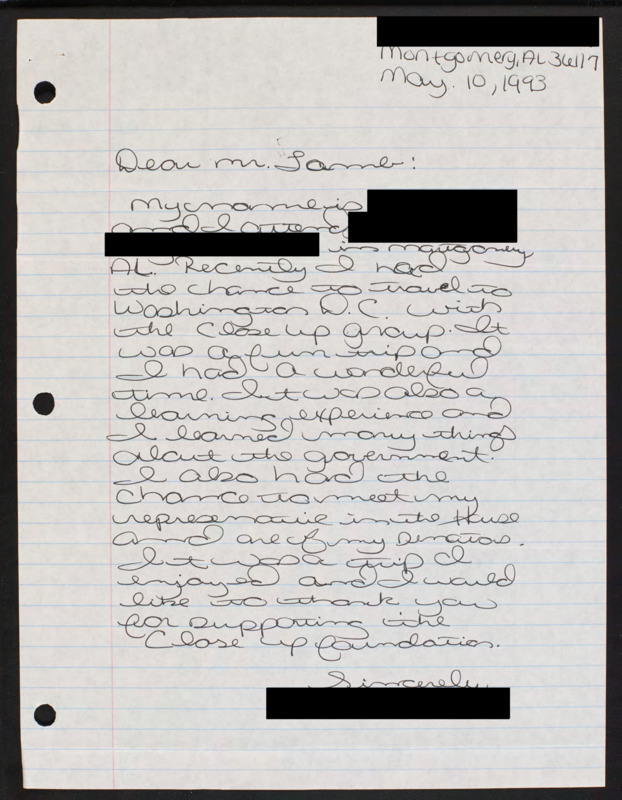 Montgomery, AL 36117
May. 10, 1993
Dear Mr. Lamb:
My name is
and I attend
in Montgomery
AL. Recently I had
the chance to travel to
Washington D.C. with
the Close Up group. It
was a fun trip and
I had a wonderful
time. It was also a
learning experience and
I learned many things
about the government.
I also had the
chance to meet my
represenative in the House
and one of my Senators.
It was a trip I
enjoyed and I would
like to thank you
for supporting the
Close Up foundation.
Sincerely,